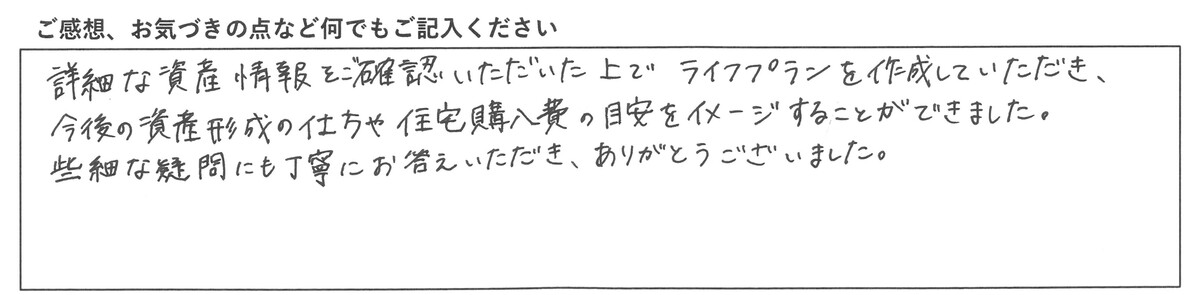 ご感想、お気づきの点など何でもご記入ください
詳細な資産情報をご確認いただいた上で ライフプランを作成していただき、
今後の資産形成の仕方や住宅購入費の目安をイメージすることができました。
些細な疑問にも丁寧にお答えいただき、ありがとうございました。